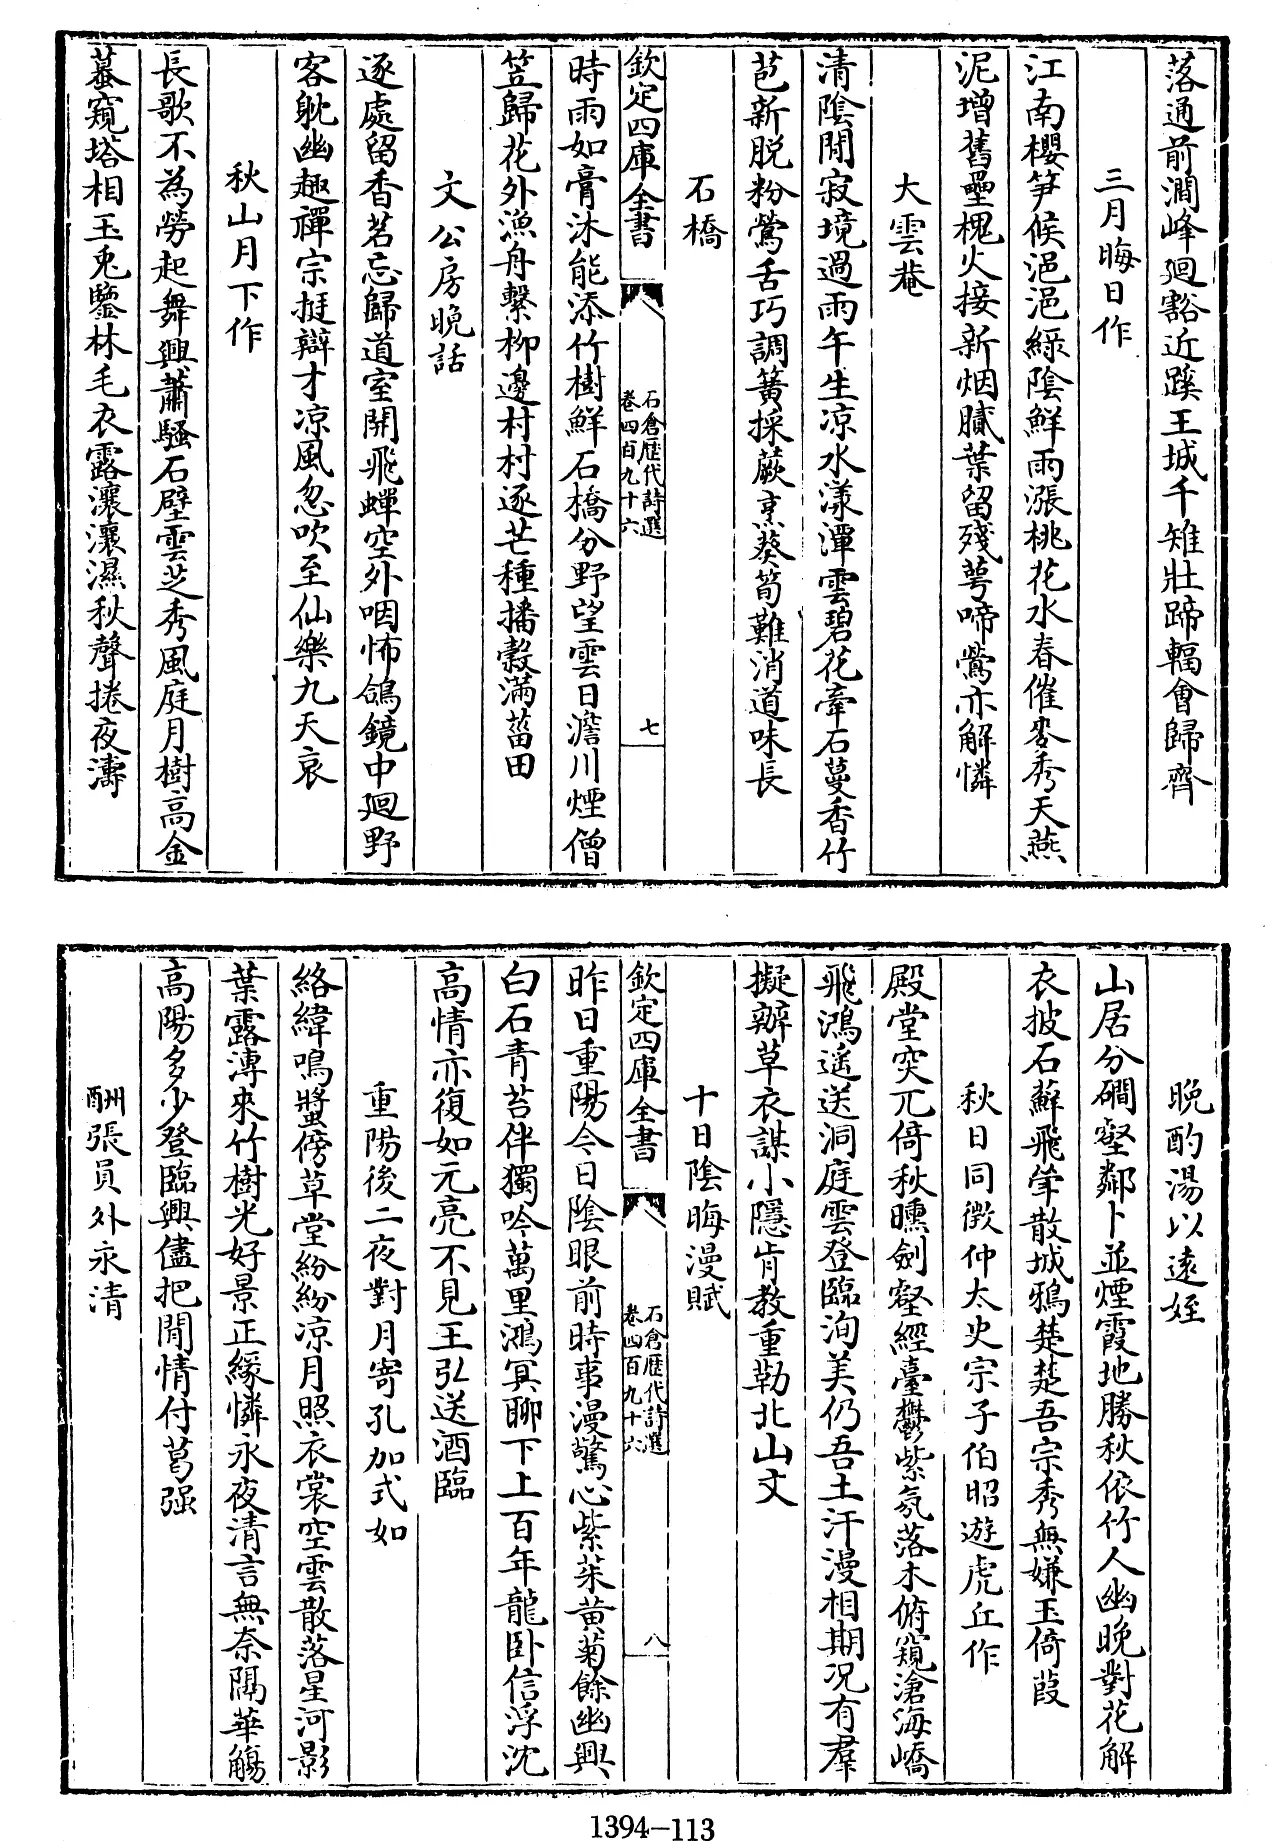 落通前澗峰廻豁近蹊王城千雉壯蹄輻會歸齊
三月晦日作
江南櫻笋候浥浥綠陰鮮雨漲桃花水春催麥秀天燕
泥增舊壘槐火接新烟膩葉留殘萼啼鶯亦解憐
大雲菴
清陰閒寂境過雨午生凉水漾潭雲碧花牽石蔓香竹
苞新脱粉鶯舌巧調簧採蕨烹葵筍難消道味長
石橋
時雨如膏沐能添竹樹鮮石橋分野望雲日澹川煙僧
笠歸花外漁舟繫柳邊村村逐芒種播穀滿菑田
文公房晚話
逐處留香茗忘歸道室開飛蟬空外咽怖鴿鏡中廻野
客躭幽趣禪宗挺辯才凉風忽吹至仙樂九天哀
秋山月下作
長歌不為勞起舞興蕭騷石壁雲芝秀風庭月樹高金
蟇窺塔相玉兎鑒林毛衣露瀼瀼濕秋聲捲夜濤
欽定四庫全書
石倉歷代詩選
卷四百九十六
七
晚酌湯以遠姪
山居分磵壑鄰卜並煙霞地勝秋依竹人幽晚對花解
衣披石蘚飛斝散城鴉楚楚吾宗秀無嫌玉倚葭
秋日同徴仲太史宗子伯昭遊虎丘作
殿堂突兀倚秋曛劍壑經臺鬱紫氛落木俯窺滄海嶠
飛鴻遥送洞庭雲登臨洵美仍吾土汗漫相期况有羣
擬辦草衣謀小隱肯教重勒北山文
十日陰晦漫賦
昨日重陽今日陰眼前時事漫驚心紫茱黄菊餘幽興
白石青苔伴獨吟萬里鴻冥聊下上百年龍卧信浮沈
高情亦復如元亮不見王弘送酒臨
重陽後二夜對月寄孔加式如
絡緯鳴螿傍草堂紛紛凉月照衣裳空雲散落星河影
葉露漙來竹樹光好景正緣憐永夜清言無奈隔華觴
高陽多少登臨興儘把閒情付葛强
酬張員外永清
欽定四庫全書
石倉歷代詩選
卷四百九十六
八
1394-113